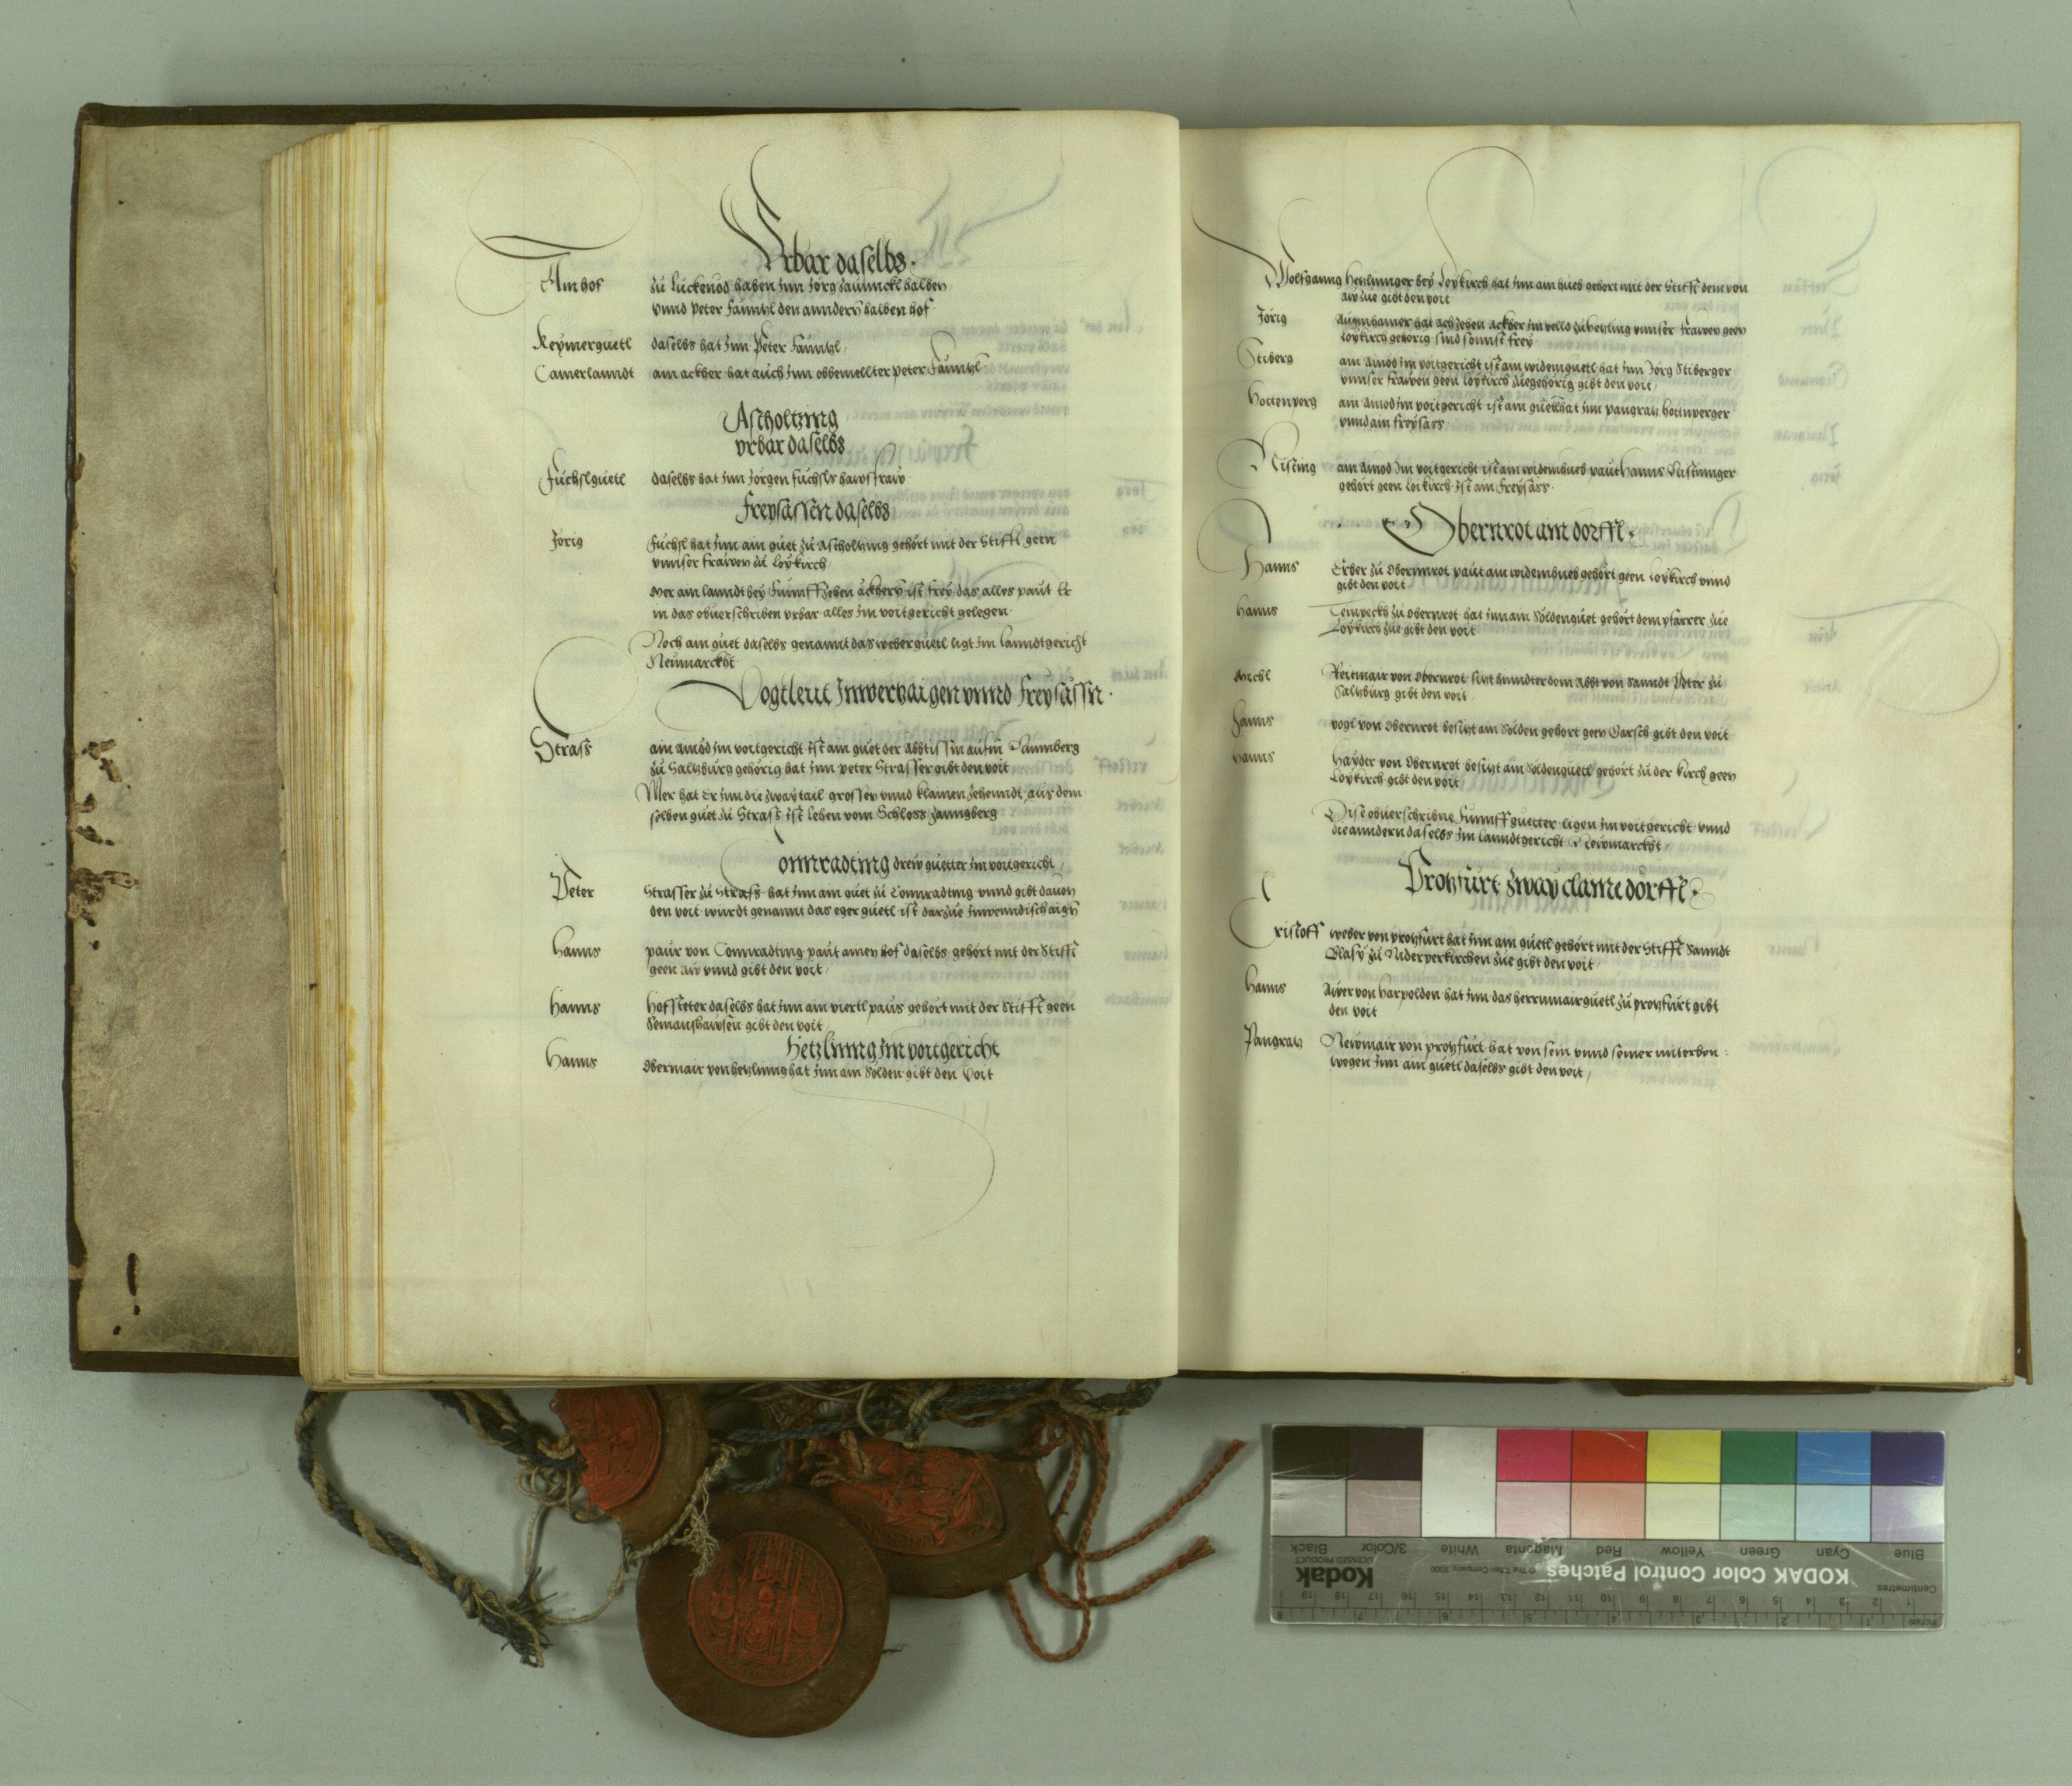 Urbar daselbs.
Am hof zu Luckenod haben Inn Jorg Zaunnckl halben
vnnd Peter Faunzl den anndern halben hof.
Keymerguetl daselbs hat Inn Peter Faunzl
Camerlanndt am ackher hat auch Inn obbemellter peter Faunzl
Ascholtzing
vrbar daselbs
Fuchslguetl daselbs hat Inn Jorgen Fuchsls hawsfraw
Freysassen daselbs
Jorig Fuchsl hat Inn ain guet zu Ascholtzing gehört mit der Stifft geen
vnnser frawen zu Loykirch
Mer ain lanndt bey Funnffzehen äckhern ist frey das alles paut Er
in das obuerschriben vrbar alles Im voitgericht gelegen.
Noch ain guet daselbs genannt das weberguetl ligt Im lanndtgericht
Neumarckht
Vogtleut Innverdaigen vnnd freysässn.
Strass ain Amöd Im voitgericht ist ain guet der Abbtissin aufm Nunnberg
zu Saltzburg gehörig hat Inn peter Strasser gibt den voit
Mer hat Er Inn die zway tail grossen vnnd klainen zehenndt aus dem
selben guet zu Strass ist lehen vom Schloss Zanngberg
Connradting drew guetter Im voitgericht
Peter Strasser zu Strass hat Inn ain guet zu Connradting vnnd gibt davon
den voit wurdt genannt das eger guetl ist darzue Innwenndisch aign
Hanns paur von Connradting paut ainen hof daselbs gehört mit der Stifft
geen aw vnnd gibt den voit
Hanns Hofsteter daselbs hat Inn ain viertl paus gehört mit der Stifft geen
Semanshawsen gibt den voit
Hetzlinng Im voitgericht
Hanns Obermair von hetzlinng hat Inn ain Sölden gibt den Voit
Wolfganng Hetzlinnger bey Loykirch hat Inn ain hueb gehort mit der Stifft dem von
aw zue gibt den voit
Jorig Aignhamer hat achzehen äckher Im velld zu hetzling vnnser frawen geen
Loykirch gehörig sind sonnst frey
Stiberg ain Amöd Im voitgericht ist ain widemguetl hat Inn Jorg Stiberger
vnnser frawen geen loykirch zuegehörig gibt den voit
Hottenperg ain Amöd Im voitgericht ist ain guetl hat Inn pangratz hottnperger
vnnd ain freysäss
Nisting ain Amöd Im voitgericht ist ain widemhueb paut Hanns Nistinnger
gehört geen loikirch ist ain freysäss
Obernrot ain dorffl.
Hanns Erber zu Obernnrot paut ain widemhueb gehört geen Loykirch vnnd
gibt den voit
Hanns Tempeckh zu Obernrot hat Inn ain Söldenguet gehört dem pfarrer zue
Loykirch zue gibt den voit
Michl Reitmair von Obernrot sitzt hinndter dem Abbt von Sanndt Peter zu
Saltzburg gibt den voit
Hanns vogl von Obernrot besitzt ain Sölden gehort geen Garsch gibt den voit
Hanns Hayder von Obernrot besitzt ain Söldenguetl gehört zu der kirch geen
Loykirch gibt den voit
Dise obuerschribne Funnff guetter ligen Im voitgericht vnnd
die anndern daselbs Im lanndtgericht Newmarckht
Protzfurt zway claine dorffl.
Cristoff weber von protzfurt hat Inn ain guetl gehört mit der Stifft Sanndt
Blasy zu Niderperkirchen zue gibt den voit
Hanns Aiver von Harpolden hat Inn das herrnmairguetl zu protzfurt gibt
den voit
Pangratz Newmair von protzfurt hat von sein vnnd seiner miterben
wegen Inn ain guetl daselbs gibt den voit
KODAK Color Control Patches
Kodak
LICENSED PRODUCT
© The Tiffen Company, 2000
Blue Cyan Green Yellow Red Magenta White 3/Color Black
Centimetres 1 2 3 4 5 6 7 8 9 10 11 12 13 14 15 16 17 18 19
Inches 1 2 3 4 5 6 7 8